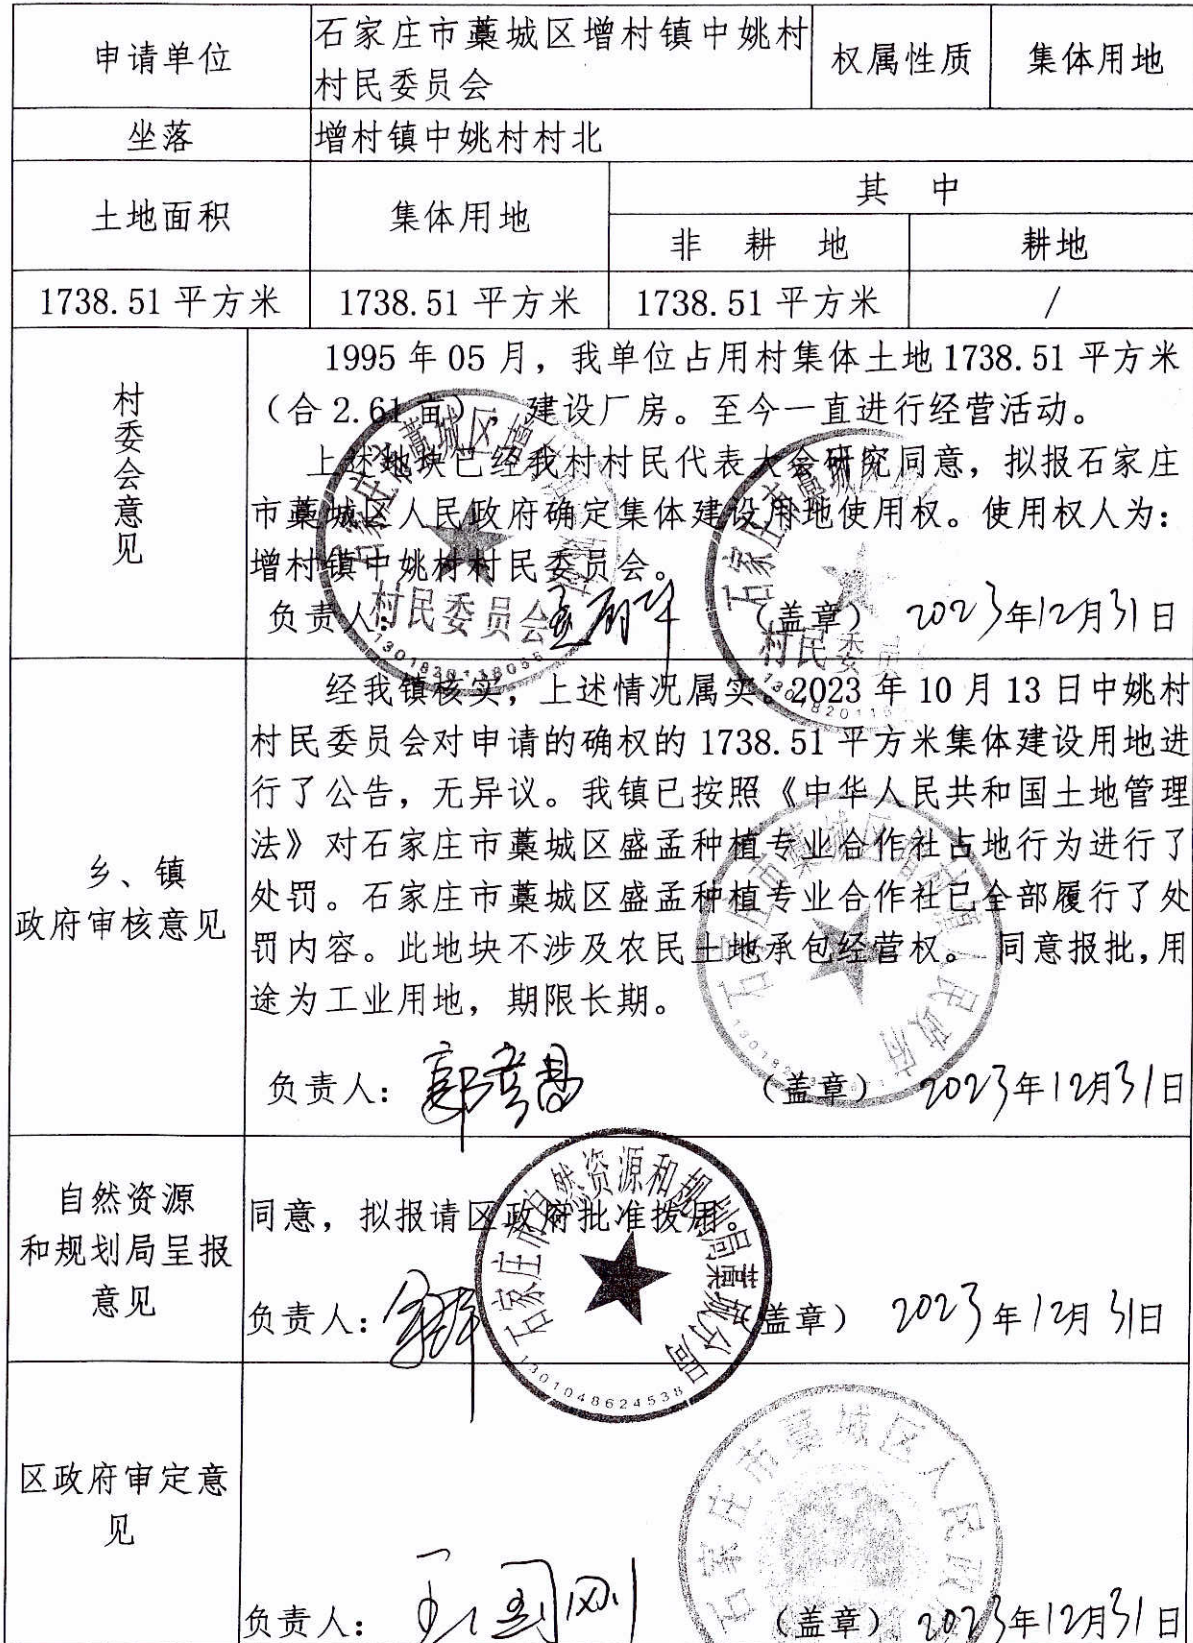 申请单位
石家庄市藁城区增村镇中姚村
村民委员会
权属性质
集体用地
坐落
增村镇中姚村村北
土地面积
集体用地
其 中
非 耕 地
耕地
1738.51 平方米
1738.51 平方米
1738.51 平方米
/
村委会意见
1995 年 05 月，我单位占用村集体土地 1738.51 平方米
（合 2.61 亩），建设厂房。至今一直进行经营活动。
上述地块已经我村村民代表大会研究同意，拟报石家庄
市藁城区人民政府确定集体建设用地使用权。使用权人为：
增村镇中姚村村民委员会。
负责人：
（盖章） 2023年12月31日
村民委员会
乡、镇
政府审核意见
经我镇核实，上述情况属实。2023 年 10 月 13 日中姚村
村民委员会对申请的确权的 1738.51 平方米集体建设用地进
行了公告，无异议。我镇已按照《中华人民共和国土地管理
法》对石家庄市藁城区盛孟种植专业合作社占地行为进行了
处罚。石家庄市藁城区盛孟种植专业合作社已全部履行了处
罚内容。此地块不涉及农民土地承包经营权。 同意报批，用
途为工业用地，期限长期。
负责人：
（盖章） 2023年12月31日
自然资源
和规划局呈报
意见
同意，拟报请区政府批准拨用。
负责人：
（盖章） 2023年12月31日
石家庄市自然资源和规划局藁城分局
1301048624538
区政府审定意
见
石家庄市藁城区人民政府
负责人：
（盖章） 2023年12月31日